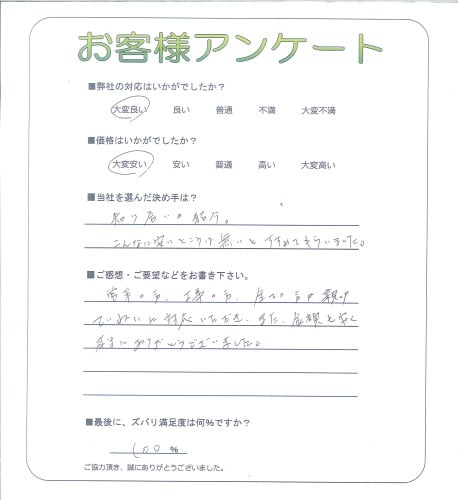 お客様アンケート
■弊社の対応はいかがでしたか？
大変良い 良い 普通 不満 大変不満
■価格はいかがでしたか？
大変安い 安い 普通 高い 大変高い
■当社を選んだ決め手は？
知り合いの紹介。
こんなに安いところは無いとすすめてもらいました。
■ご感想・ご要望などをお書き下さい。
営業の方、工事の方、全ての方が親切
ていねいに対応いただき、また、金額も安く
本当にありがとうございました。
■最後に、ズバリ満足度は何％ですか？
100 %
ご協力頂き、誠にありがとうございました。